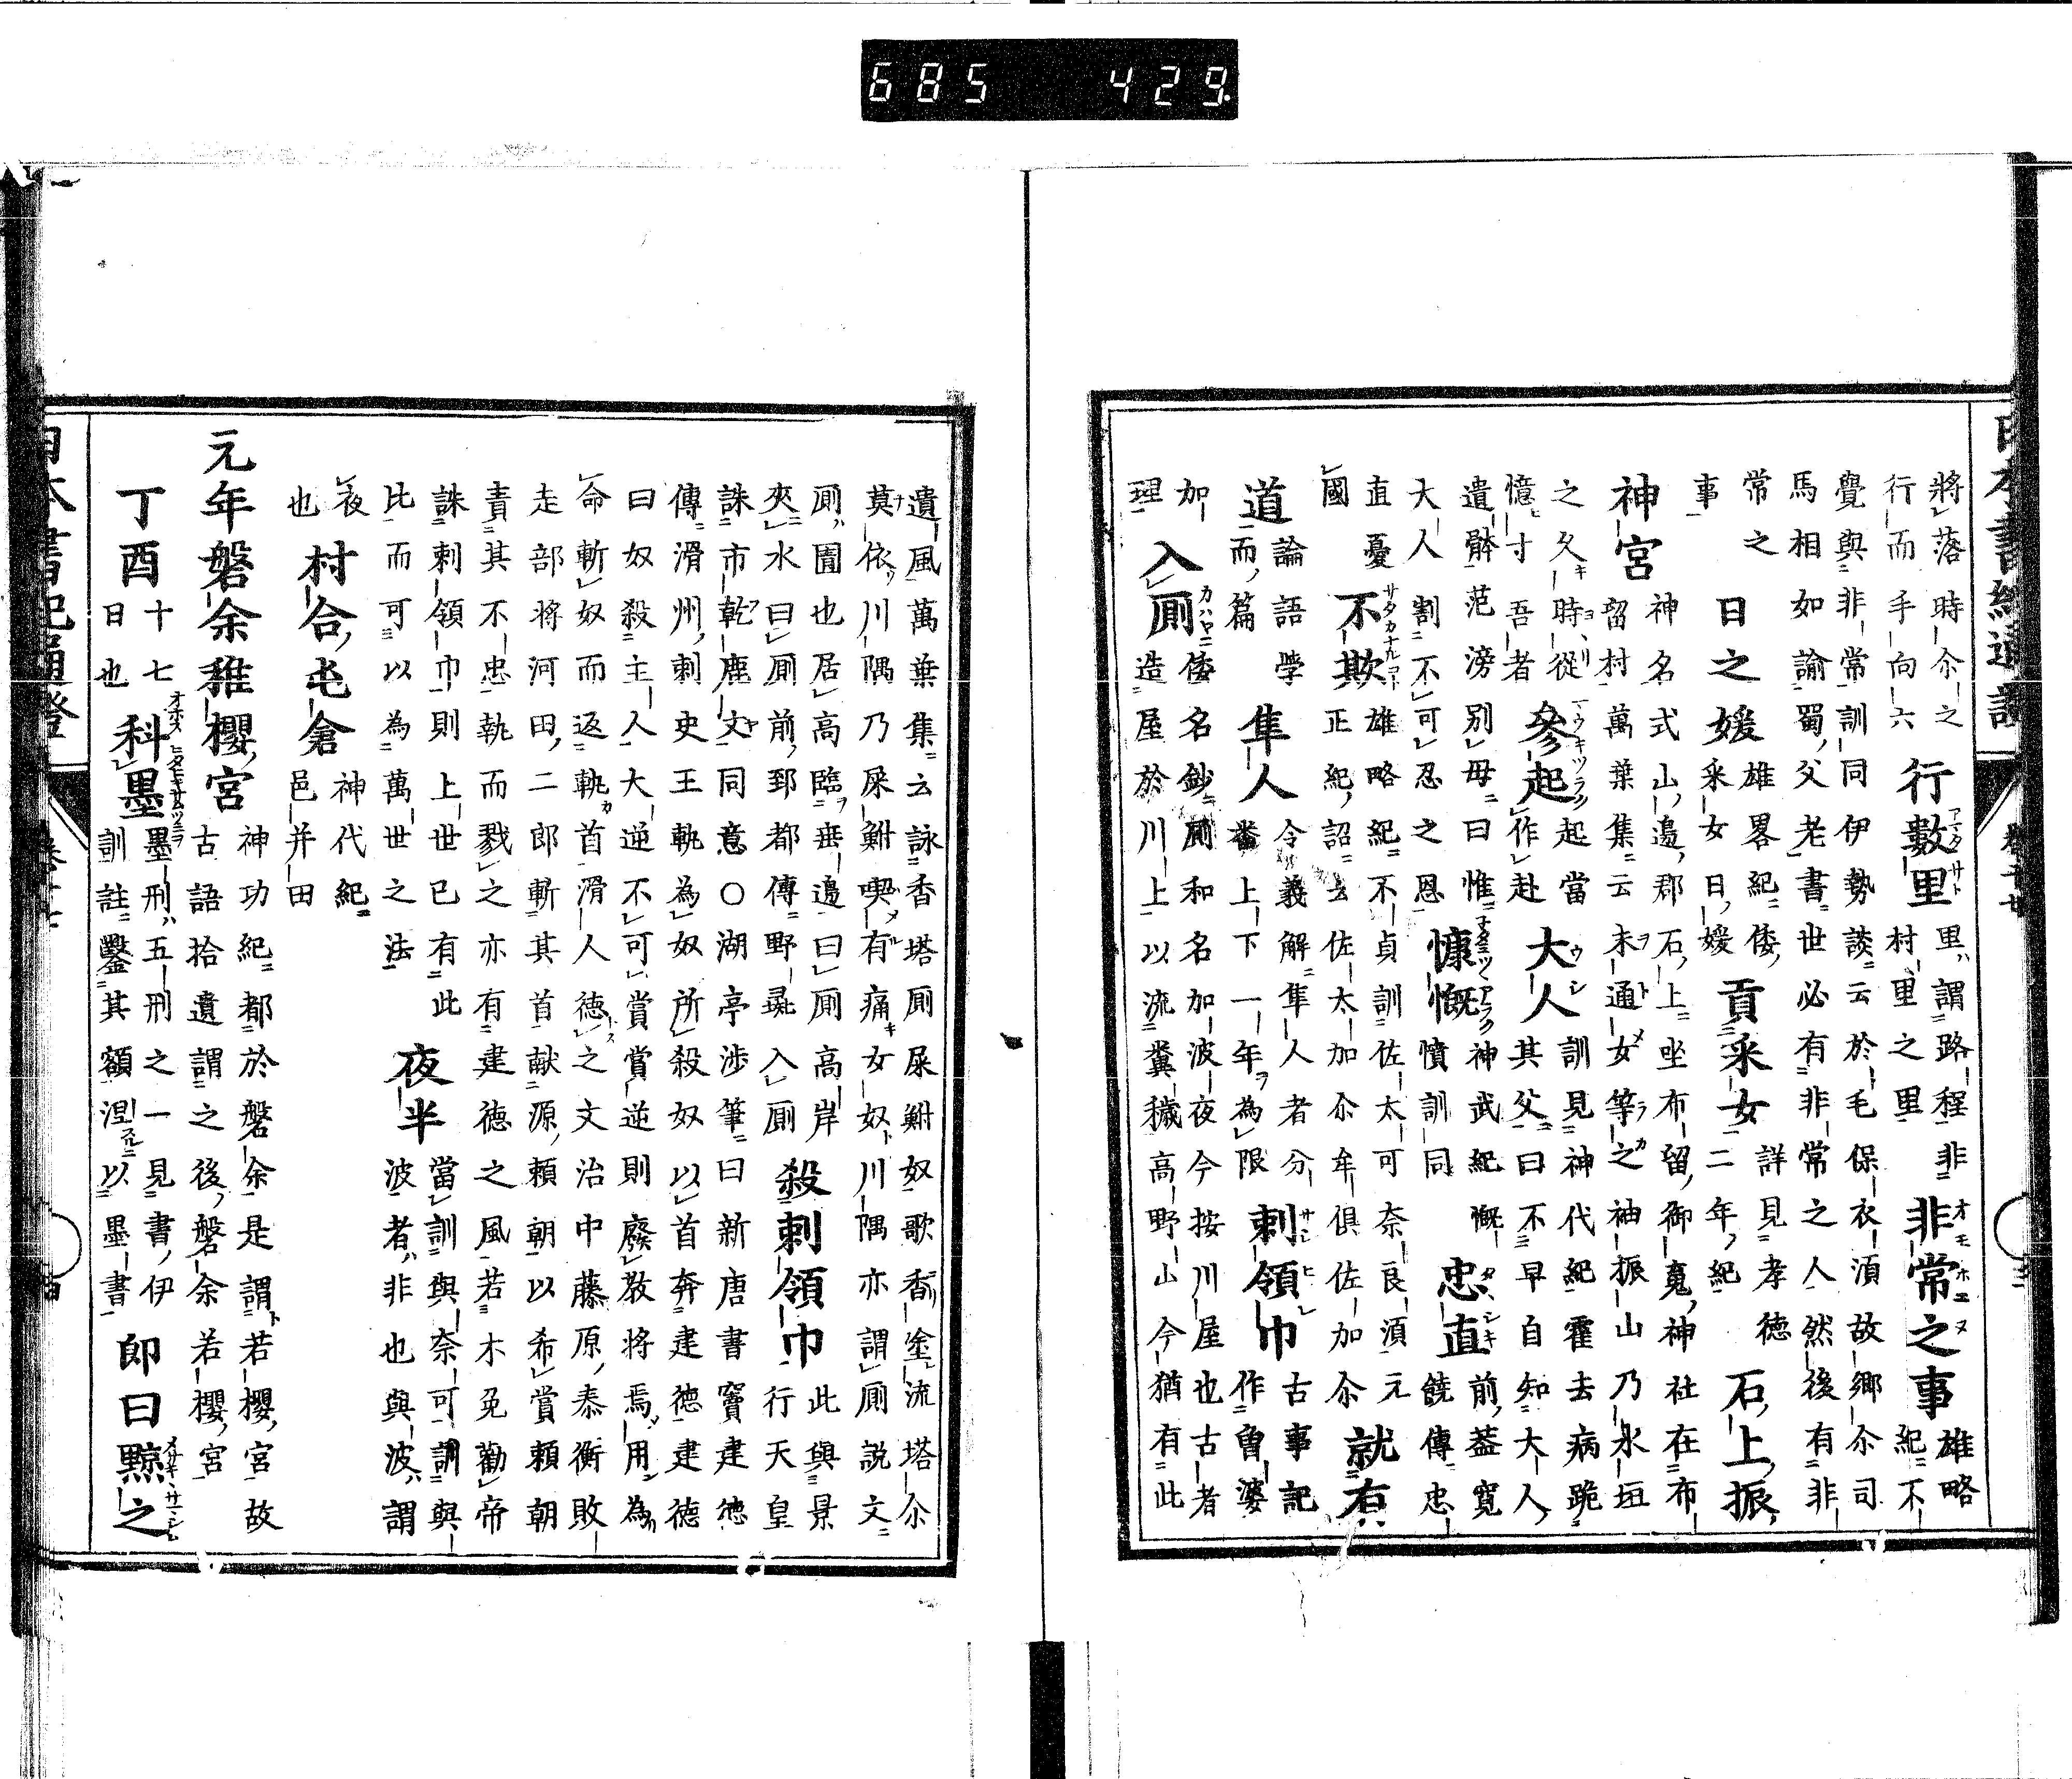 685 429
將落時尒之
行而手向六
行數里
里謂路程非
村里之里
非常之事
雄略
紀不
覺與非常訓同伊勢談云於毛保衣湏故鄉尒司
馬相如諭蜀父老書世必有非常之人然後有非
常之
事
日之媛
雄畧紀倭
采女日媛
貢采女
詳見孝徳
二年紀
石上振
神宮
神名式山邉郡石上坐布留御䰟神社在布
留村萬葉集云未通女等之袖振山乃水垣
之久時從
憶寸吾者
參起
起當
作赴
大人
訓見神代紀霍去病跪
其父曰不早自知大人
遺骵范滂別母曰惟
大人割不可忍之恩
慷慨
神武紀慨
憤訓同
忠直
前葢寛
饒傳忠
直憂
國
不欺
雄略紀不貞訓佐太可奈良湏元
正紀詔云佐太加尒牟俱佐加尒
就有
道
論語學
而篇
隼人
令義解隼人者分
畨上下一年為限
刺領巾
古事記
作曽婆
加
理
入厠
倭名鈔厠和名加波夜今按川屋也古者
造屋於川上以流糞穢高野山今猶有此
遺風萬葉集云詠香塔厠屎鮒奴歌香塗流塔尒
莫依川隅乃屎鮒喫有痛女奴川隅亦謂厠説文
厠圊也居高臨垂邉曰厠高岸
夾水曰厠前郅都傳野彘入厠
殺刺領巾
此與景
行天皇
誅市乾鹿文同意〇湖亭渉筆曰新唐書竇建徳
傳滑州刺史王軌為奴所殺奴以首奔建徳建徳
曰奴殺主人大逆不可賞賞逆則廢教將焉用為
命斬奴而返軌首滑人徳之文治中藤原泰衡敗
走部將河田二郎斬其首献源頼朝以希賞頼朝
責其不忠執而戮之亦有建徳之風若木免勸帝
誅刺領巾則上世已有此
比而可以為萬世之法
夜半
當訓與奈可訓與
波者非也與波謂
夜
也
村合屯倉
神代紀
邑并田
元年磐余稚櫻宮
神功紀都於磐余是謂若櫻宮故
古語拾遺謂之後磐余若櫻宮
丁酉
十七
日也
科墨
墨刑五刑之一見書伊
訓註鑿其額涅以墨書
即日黥之